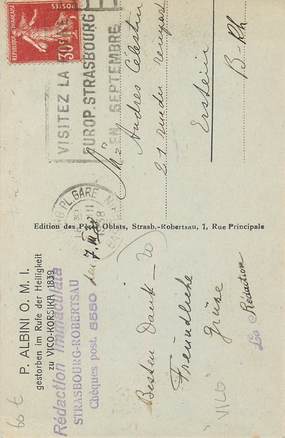 RÉPUBLIQUE FRANÇAISE
30c
VISITEZ LA
EUROP. STRASBOURG
EN SEPTEMBRE
PL. GARE
Mr Andres Célestin
21 rue du rempart
Erstein
B-Rh
Edition des Pères Oblats, Strasb.-Robertsau, 7, Rue Principale
P. ALBINI O. M. I.
gestorben im Rufe der Heiligkeit
zu VICO-KORSIKA 1839
Rédaction Immaculata
STRASBOURG-ROBERTSAU
Chèques post. 6550
den 7. Mai
Besten Dank
Freundliche
Grüsse
La Rédaction
VICO